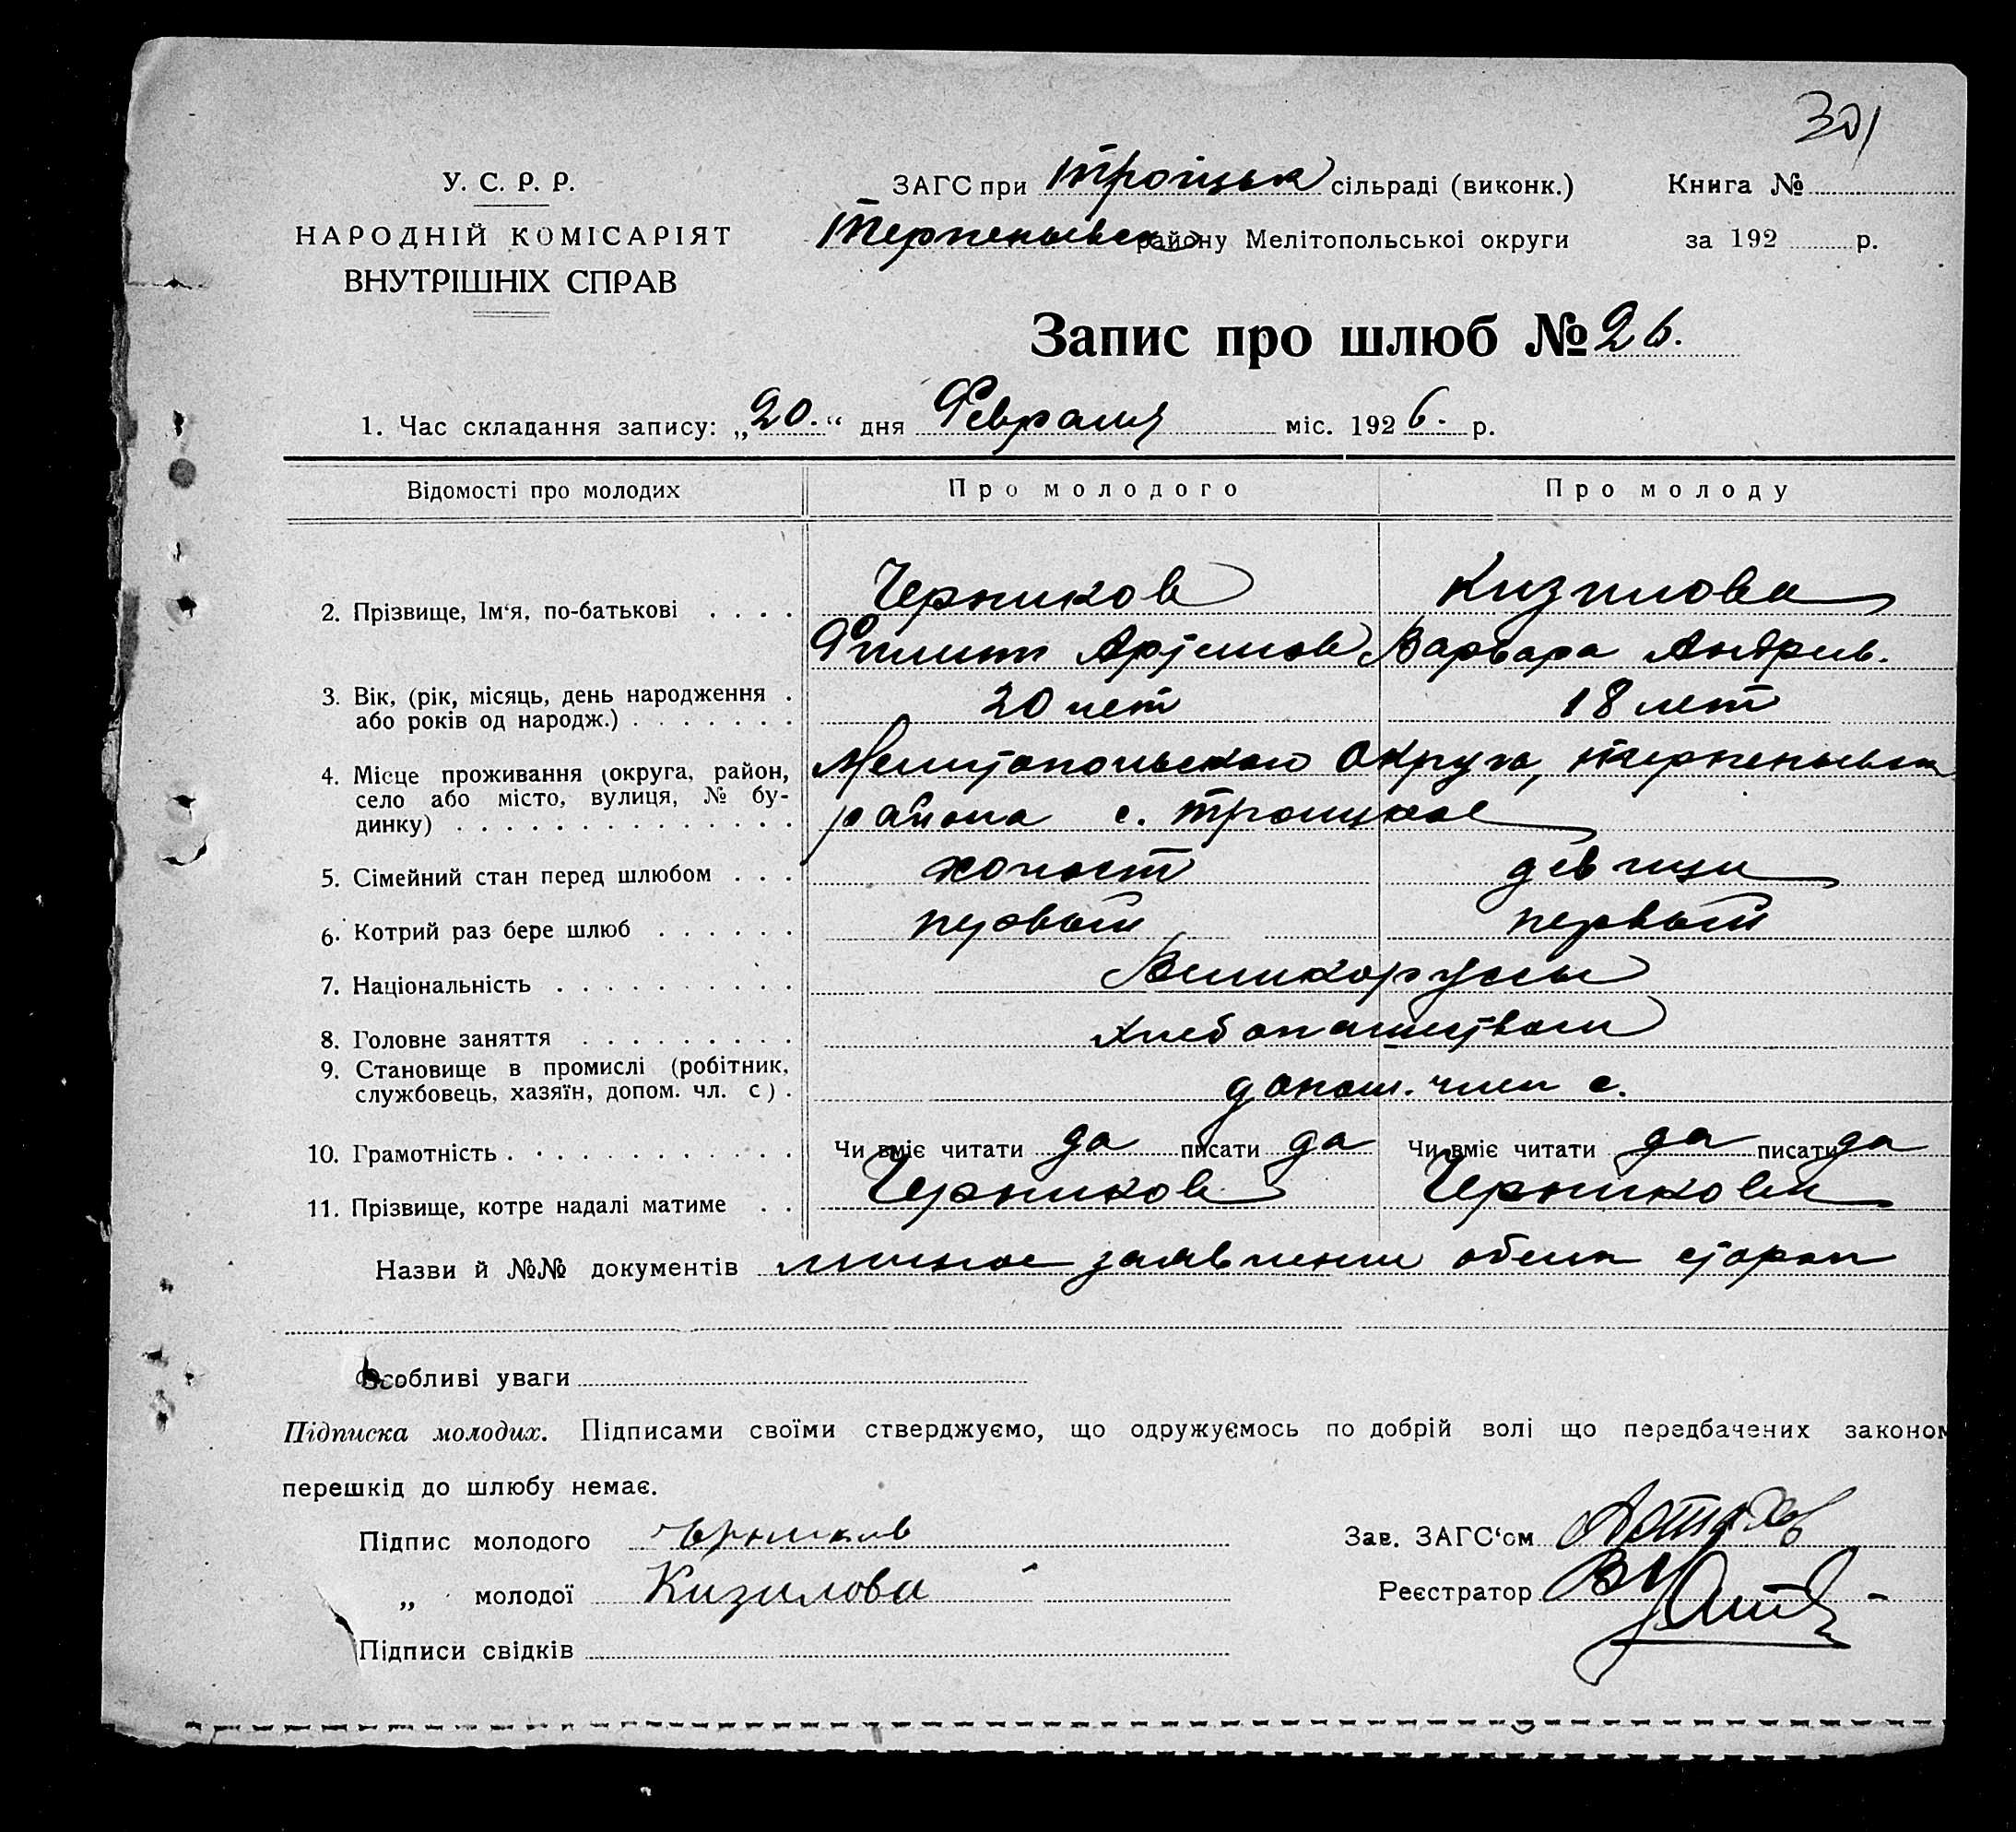 У. С. Р. Р.
НАРОДНІЙ КОМІСАРІЯТ
ВНУТРІШНІХ СПРАВ
ЗАГС при Троіцьк сільраді (виконк.)
Терпеньевск району Мелітопольскої округи
Книга №
за 192 р.
Запис про шлюб № 26.
1. Час складання запису: „20.“ дня Февраля міс. 1926. р.
Відомості про молодих Про молодого Про молоду
2. Прізвище, Ім‘я, по-батькові Черников Кизилова
Филипп Артемов Варвара Андрив.
3. Вік, (рік, місяць, день народження
або років од народж.) 20 лет 18 лет
4. Місце проживання (округа, район,
село або місто, вулиця, № бу-
динку)
Мелитопольского Округа, Терпеньевск
района с. Троицкое
5. Сімейний стан перед шлюбом холост девица
6. Котрий раз бере шлюб первый первый
7. Національність Великоруссы
8. Головне заняття Хлебопашеством
9. Становище в промислі (робітник,
службовець, хазяїн, допом. чл. с). допом. член с.
10. Грамотність Чи вміє читати да писати да Чи вміє читати да писати да
11. Прізвище, котре надалі матиме Черников Черникова
Назви й №№ документів личное заявление обеих сторон
Особливі уваги
Підписка молодих. Підписами своїми стверджуємо, що одружуємось по добрій волі що передбачених законом
перешкід до шлюбу немає.
Підпис молодого Черников
„ молодої Кизилова
Підписи свідків
Зав. ЗАГС‘ом
Реєстратор